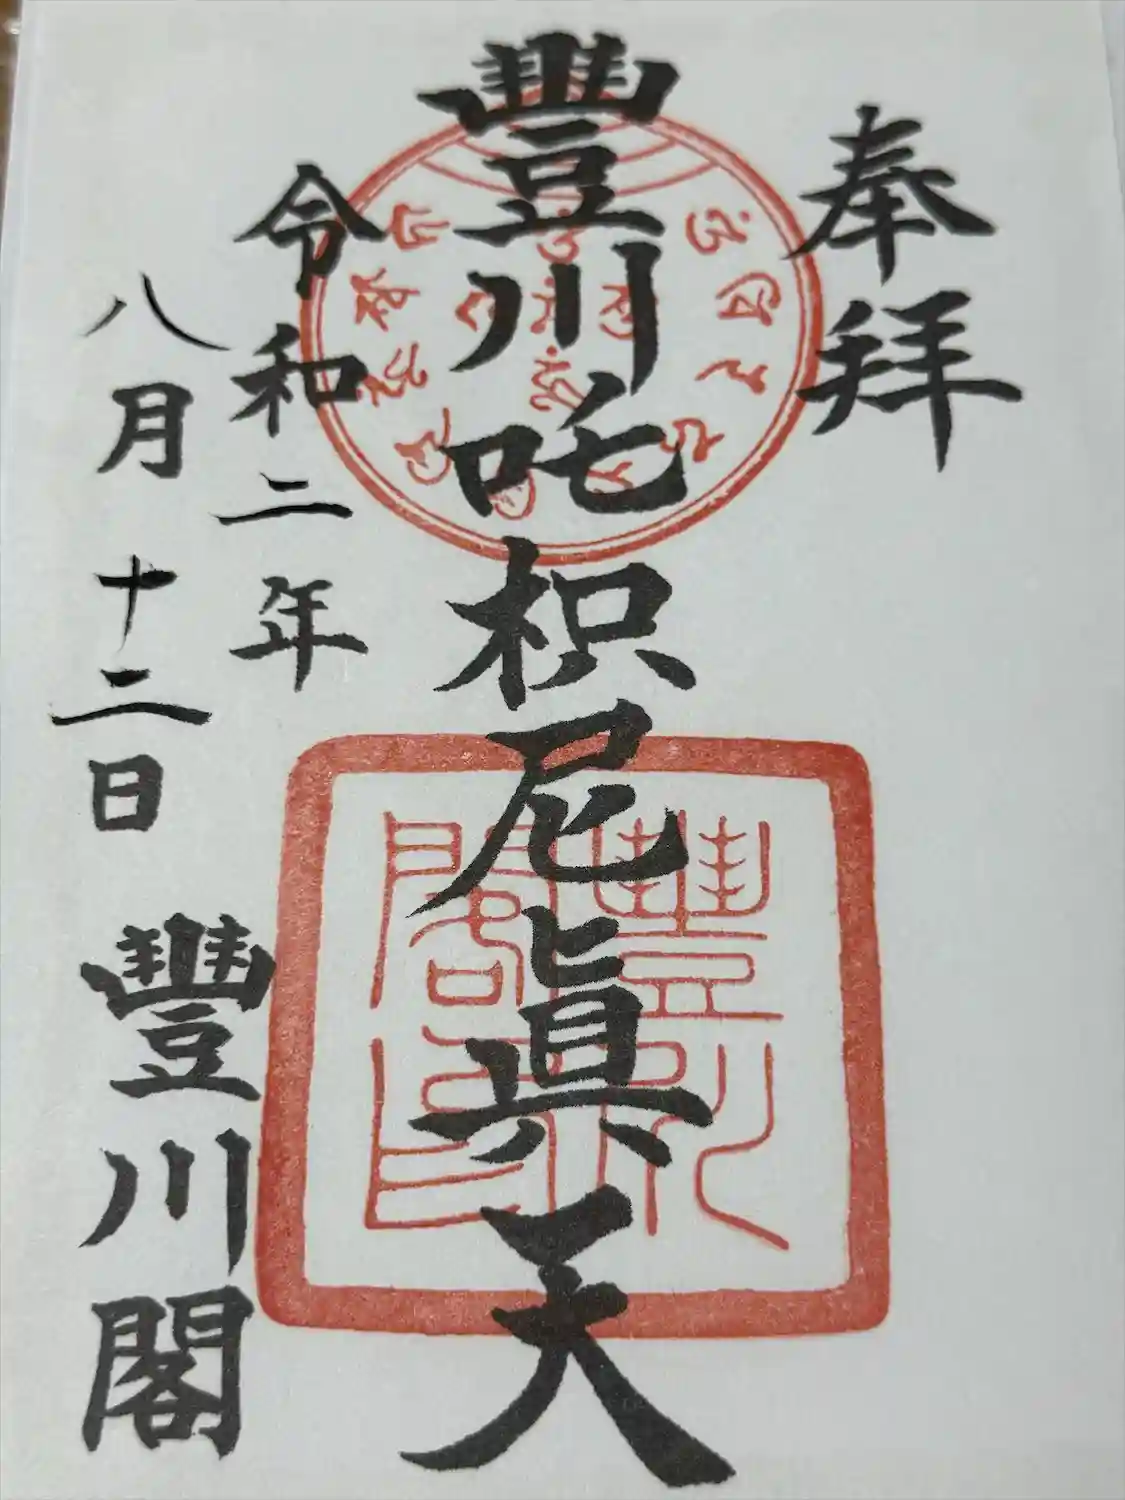 奉拝
豐川吒枳尼眞天
令和二年
八月十二日
豐川閣
豐川閣印